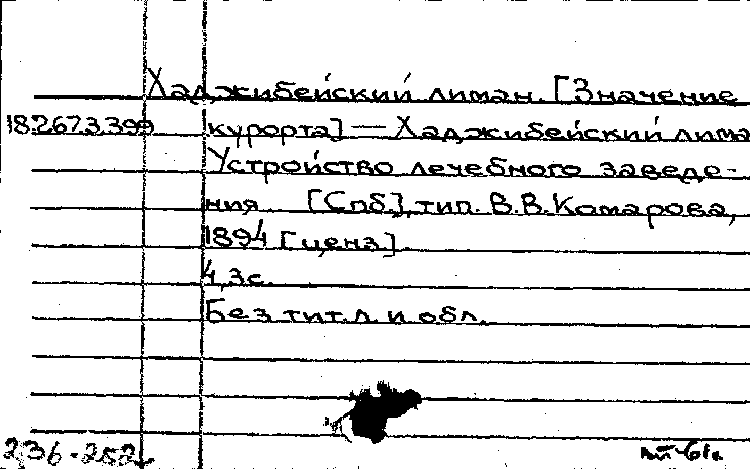 Хаджибейский лиман. [Значение
18.267.3.399 курорта] — Хаджибейский лима
Устройство лечебного заведе-
ния [Спб], тип. В.В. Комарова,
1894 [ценз].
4,3с.
Без тит.л. и обл.